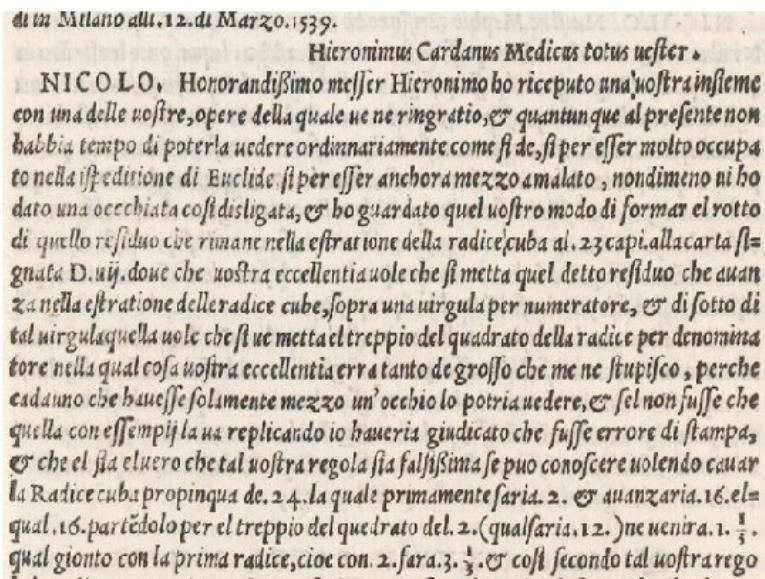 di in Milano alli.12.di Marzo.1539.
Hieronimus Cardanus Medicus totus uester.
NICOLO. Honorandißimo messer Hieronimo ho riceputo una uostra insieme
con una delle uostre, opere della quale ue ne ringratio, & quantunque al presente non
habbia tempo di poterla uedere ordinnariamente come si de, si per esser molto occupa
to nella ispeditione di Euclide si per esser anchora mezzo amalato, nondimeno ui ho
dato una occchiata cosi disligata, & ho guardato quel uostro modo di formar el rotto
di quello residuo che rimane nella estratione della radice cuba al.23 capi. alla carta si=
gnata D. uij. doue che uostra eccellentia uole che si metta quel detto residuo che auan
za nella estratione delle radice cube, sopra una uirgula per numeratore, & di sotto di
tal uirgula quella uole che si ue metta el treppio del quadrato della radice per denomina
tore nella qual cosa uostra eccellentia erra tanto de grosso che me ne stupisco, perche
cadauno che hauesse solamente mezzo un'occhio lo potria uedere, & sel non fusse che
quella con essempij la ua replicando io haueria giudicato che fusse errore di stampa,
& che el sia el uero che tal uostra regola sia falsißima se puo conoscere uolendo cauar
la Radice cuba propinqua de.24.la quale primamente saria.2. & auanzaria.16.el=
qual.16.partẽdolo per el treppio del quedrato del.2.(qual saria.12.) ne uenira.1. 1/3.
qual gionto con la prima radice, cioe con.2.fara.3. 1/3. & cosi secondo tal uostra rego